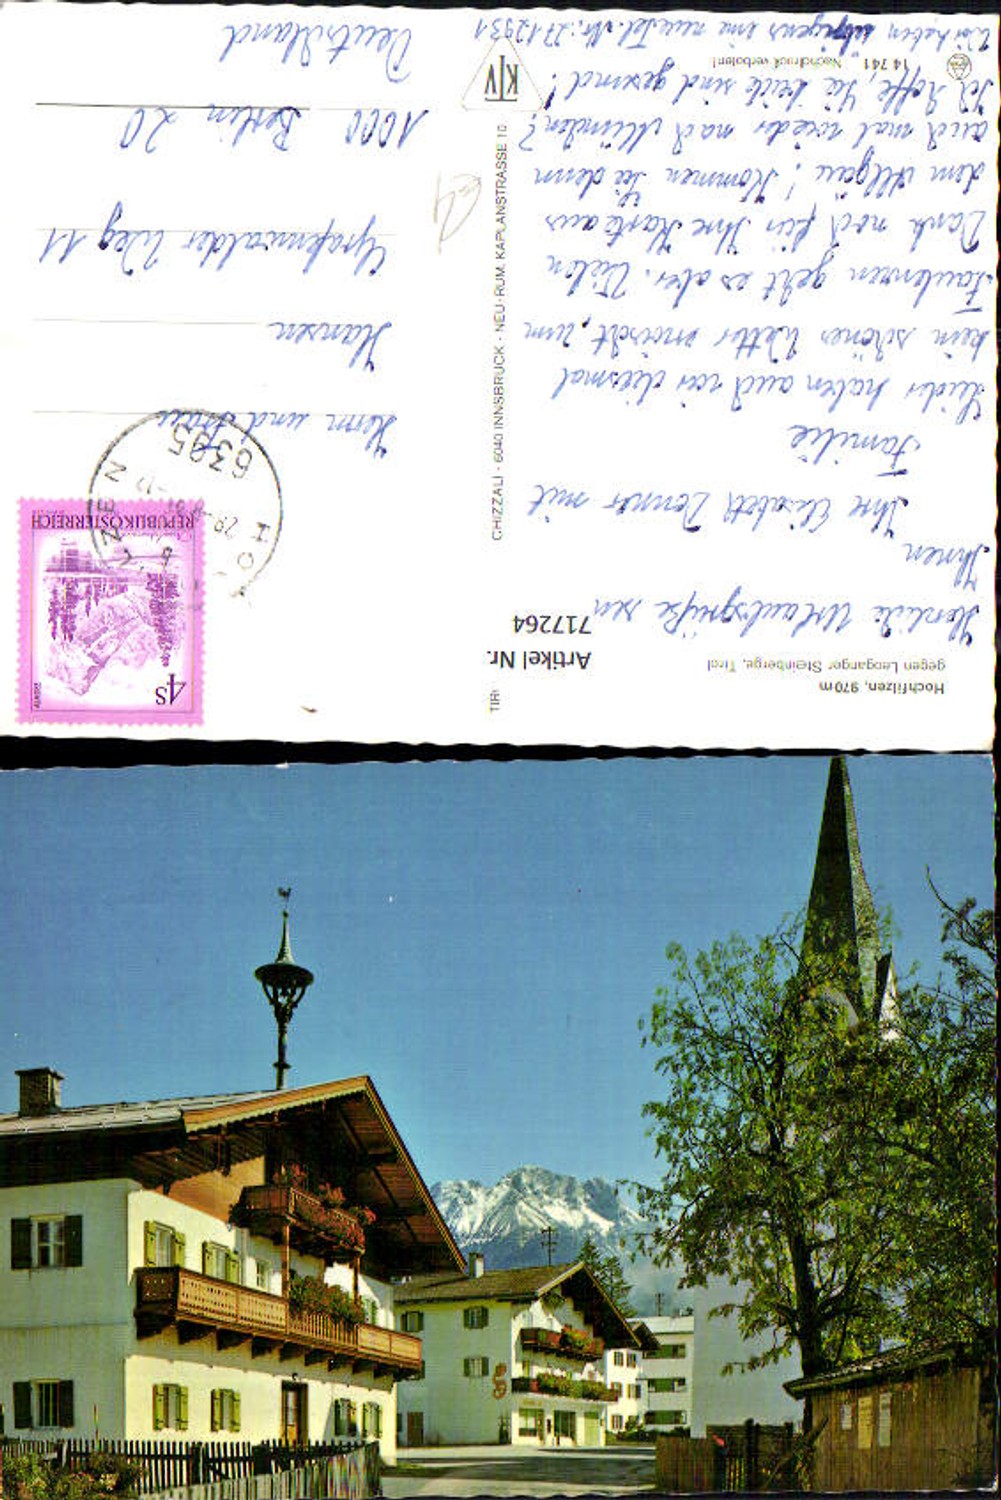 Hochfilzen, 970 m
gegen Leoganger Steinberge, Tirol
Herzliche Urlaubsgrüße sen
Ihnen
Ihre Elisabeth Donner mit
Familie
Leider haben auch wir diesmal
kein schönes Wetter erwischt, zum
Faulenzen geht es aber. Vielen
Dank noch für Ihre Karte aus
dem Allgäu! Kommen Sie denn
auch mal wieder nach München?
Ich hoffe, Sie beide sind gesund!
Wir haben übrigens eine neue Tel. Nr.: 2712931
14 741 Nachdruck verboten!
Artikel Nr.
717264
TIR
CHIZZALI · 6040 INNSBRUCK - NEU-RUM, KAPLANSTRASSE 10
KTV
4S
ALMSEE
REPUBLIK ÖSTERREICH
HO ZEN
6395
Herrn und Frau
Hansen
Grafenwalder Weg 11
1000 Berlin 20
Deutschland